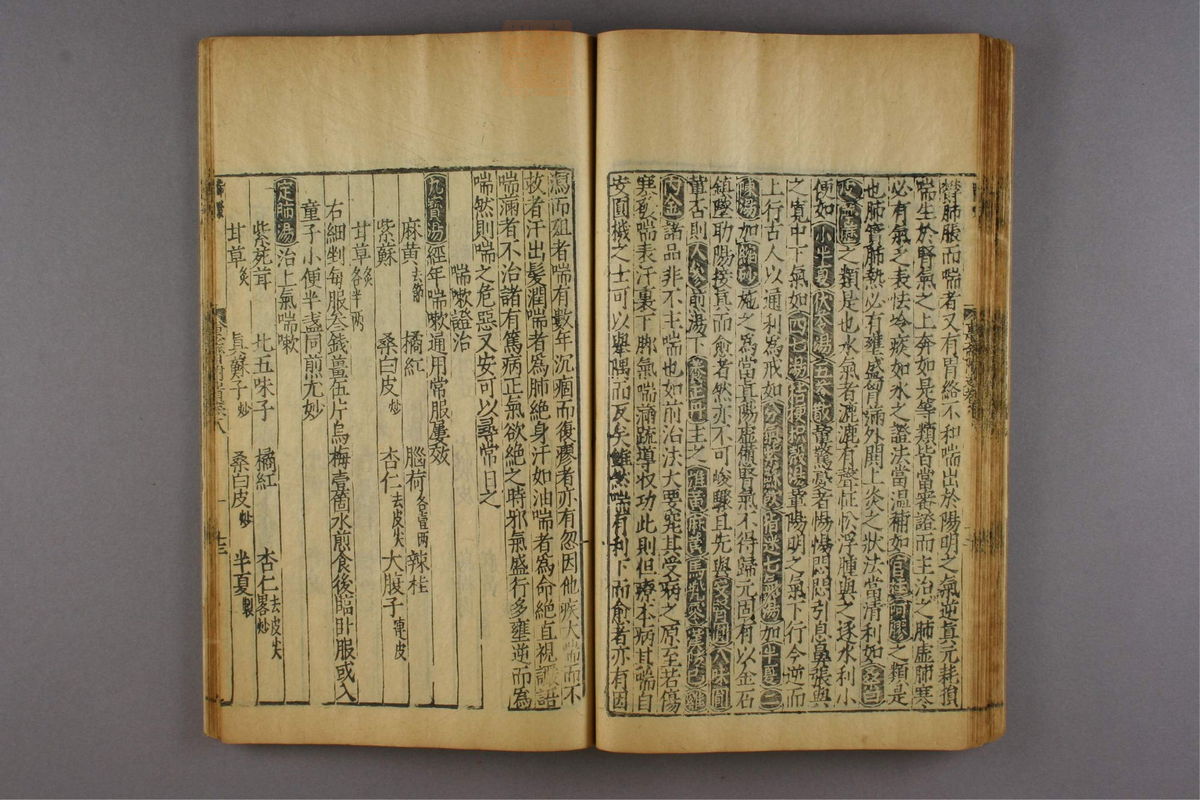 臂肺脹而喘者又有胃絡不和喘出於陽明之氣逆真元耗損
喘生於腎氣之上奔如是等類皆當審證而主治之肺虛肺寒
必有氣乏表怯冷痰如水之證法當溫補如官桂阿膠之類是
也肺實肺熱必有壅盛胷滿外閧上炎之狀法當清利如
之類是也水氣者漉漉有聲怔忪浮腫與之逐水利小
便如小半夏茯苓湯五苓散軰驚憂者惕惕悶悶引息鼻張與
之寬中下氣如四七湯桔梗枳殼湯軰陽明之氣下行今逆而
上行古人以通利爲戒如分氣紫蘇飲指迷七氣湯加半夏二
陳湯加縮砂施之爲當真陽虛憊腎氣不得歸元固有以金石
鎮墜助陽接真而愈者然亦不可峻驟且先與安腎圓八味圓
軰否則人參煎湯下養正丹主之雄黃麻黃馬兜鈴
內金諸品非不主喘也如前治法大要究其受病之原至若傷
寒發喘表汗裏下脚氣喘滿疏導收功此則但療本病其喘自
安圓機之士可以舉隅而反矣雖然喘有利下而愈者亦有因
瀉而殂者喘有數年沉痼而復瘳者亦有忽因他疾大喘而不
救者汗出髮潤喘者爲肺絕身汗如油喘者爲命絕直視讝語
喘滿者不治諸有篤病正氣欲絕之時邪氣盛行多壅逆而爲
喘然則喘之危惡又安可以尋常目之
喘嗽證治
九寶湯 經年喘嗽通用常服屢效
麻黃去節 橘紅 腦荷各壹兩 辣桂
紫蘇 桑白皮炒 杏仁去皮尖 大腹子連皮
甘草炙各半兩
右細剉每服叁錢薑伍片烏梅壹箇水煎食後臨卧服或入
童子小便半盞同煎尤妙
定肺湯 治上氣喘嗽
紫菀茸 北五味子 橘紅 杏仁去皮尖畧炒
甘草炙 真蘇子炒 桑白皮炒 半夏製